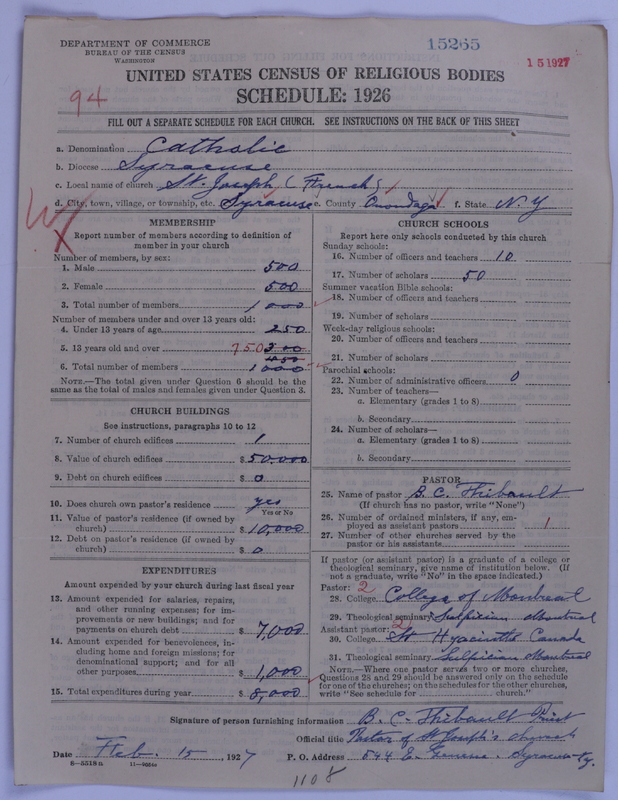 DEPARTMENT OF COMMERCE
BUREAU OF THE CENSUS
WASHINGTON
15265
1 5 1927
UNITED STATES CENSUS OF RELIGIOUS BODIES
SCHEDULE: 1926
94
FILL OUT A SEPARATE SCHEDULE FOR EACH CHURCH. SEE INSTRUCTIONS ON THE BACK OF THIS SHEET
a. Denomination Catholic
b. Diocese Syracuse
c. Local name of church St. Joseph (French)
d. City, town, village, or township, etc. Syracuse e. County Onondaga f. State N. Y
MEMBERSHIP
Report number of members according to definition of
member in your church
Number of members, by sex:
1. Male 500
2. Female 500
3. Total number of members 1000
Number of members under and over 13 years old:
4. Under 13 years of age 250
5. 13 years old and over 750 300
450
6. Total number of members 1000
NOTE.—The total given under Question 6 should be the
same as the total of males and females given under Question 3.
CHURCH BUILDINGS
See instructions, paragraphs 10 to 12
7. Number of church edifices 1
8. Value of church edifices $50.000
9. Debt on church edifices $0
10. Does church own pastor's residence yes
Yes or No
11. Value of pastor's residence (if owned by
church) $10,000
12. Debt on pastor's residence (if owned by
church) $0
EXPENDITURES
Amount expended by your church during last fiscal year
13. Amount expended for salaries, repairs,
and other running expenses; for im-
provements or new buildings; and for
payments on church debt $7,000
14. Amount expended for benevolences, in-
cluding home and foreign missions; for
denominational support; and for all
other purposes $1,000
15. Total expenditures during year $8,000
CHURCH SCHOOLS
Report here only schools conducted by this church
Sunday schools:
16. Number of officers and teachers 10
17. Number of scholars 50
Summer vacation Bible schools:
18. Number of officers and teachers
19. Number of scholars
Week-day religious schools:
20. Number of officers and teachers
21. Number of scholars
Parochial schools:
22. Number of administrative officers 0
23. Number of teachers—
a. Elementary (grades 1 to 8)
b. Secondary
24. Number of scholars—
a. Elementary (grades 1 to 8)
b. Secondary
PASTOR
25. Name of pastor B. C. Thibault
(If church has no pastor, write "None")
26. Number of ordained ministers, if any, em-
ployed as assistant pastors 1
27. Number of other churches served by the
pastor or his assistants
If pastor (or assistant pastor) is a graduate of a college or
theological seminary, give name of institution below. (If
not a graduate, write "No" in the space indicated.)
Pastor: 2
28. College College of Montreal
29. Theological seminary Sulpician Montreal
Assistant pastor: 2
30. College St Hyacinthe Canada
31. Theological seminary Sulpician Montreal
NOTE.—Where one pastor serves two or more churches,
Questions 28 and 29 should be answered only on the schedule
for one of the churches; on the schedules for the other churches,
write "See schedule for church."
Signature of person furnishing information B. C. Thibault Priest
Official title Pastor of St Joseph's church
Date Feb. 15, 1927 P. O. Address 844 E. Genesee. Syracuse
8—5518a
1108